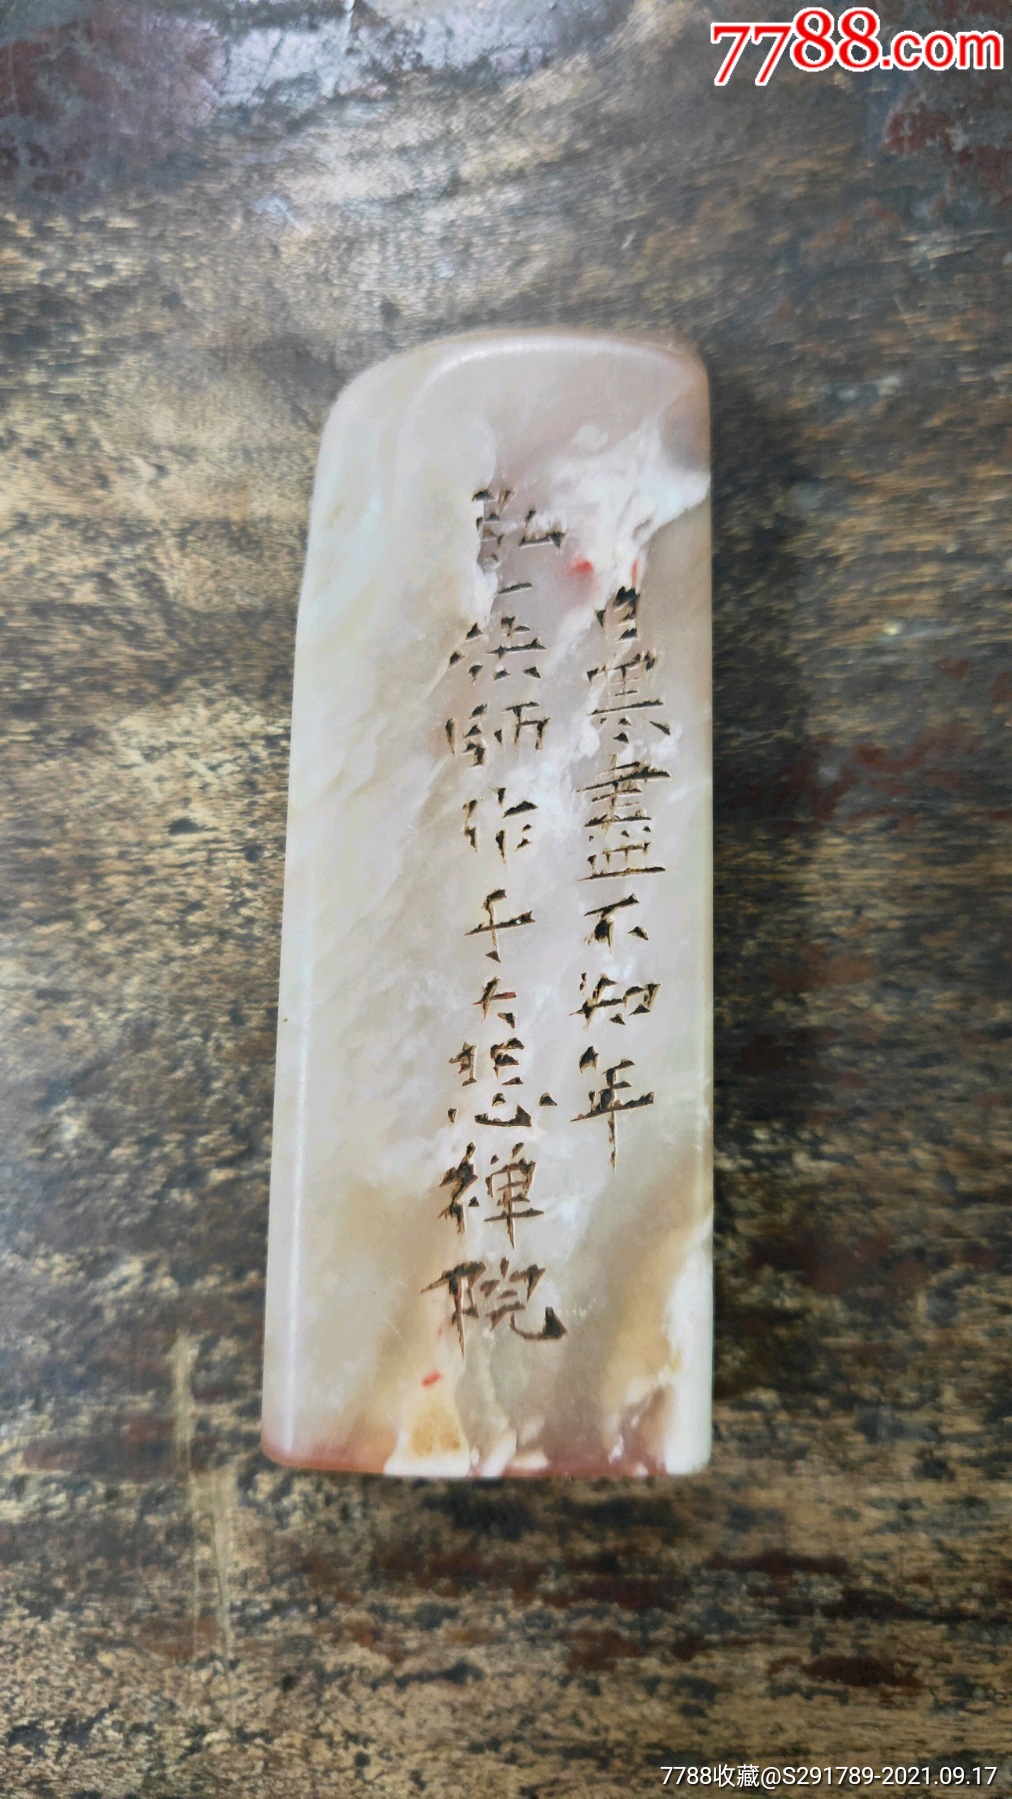 7788.com
日寒盡不知年
弘一法師作于大悲禅院
7788收藏@S291789-2021.09.17